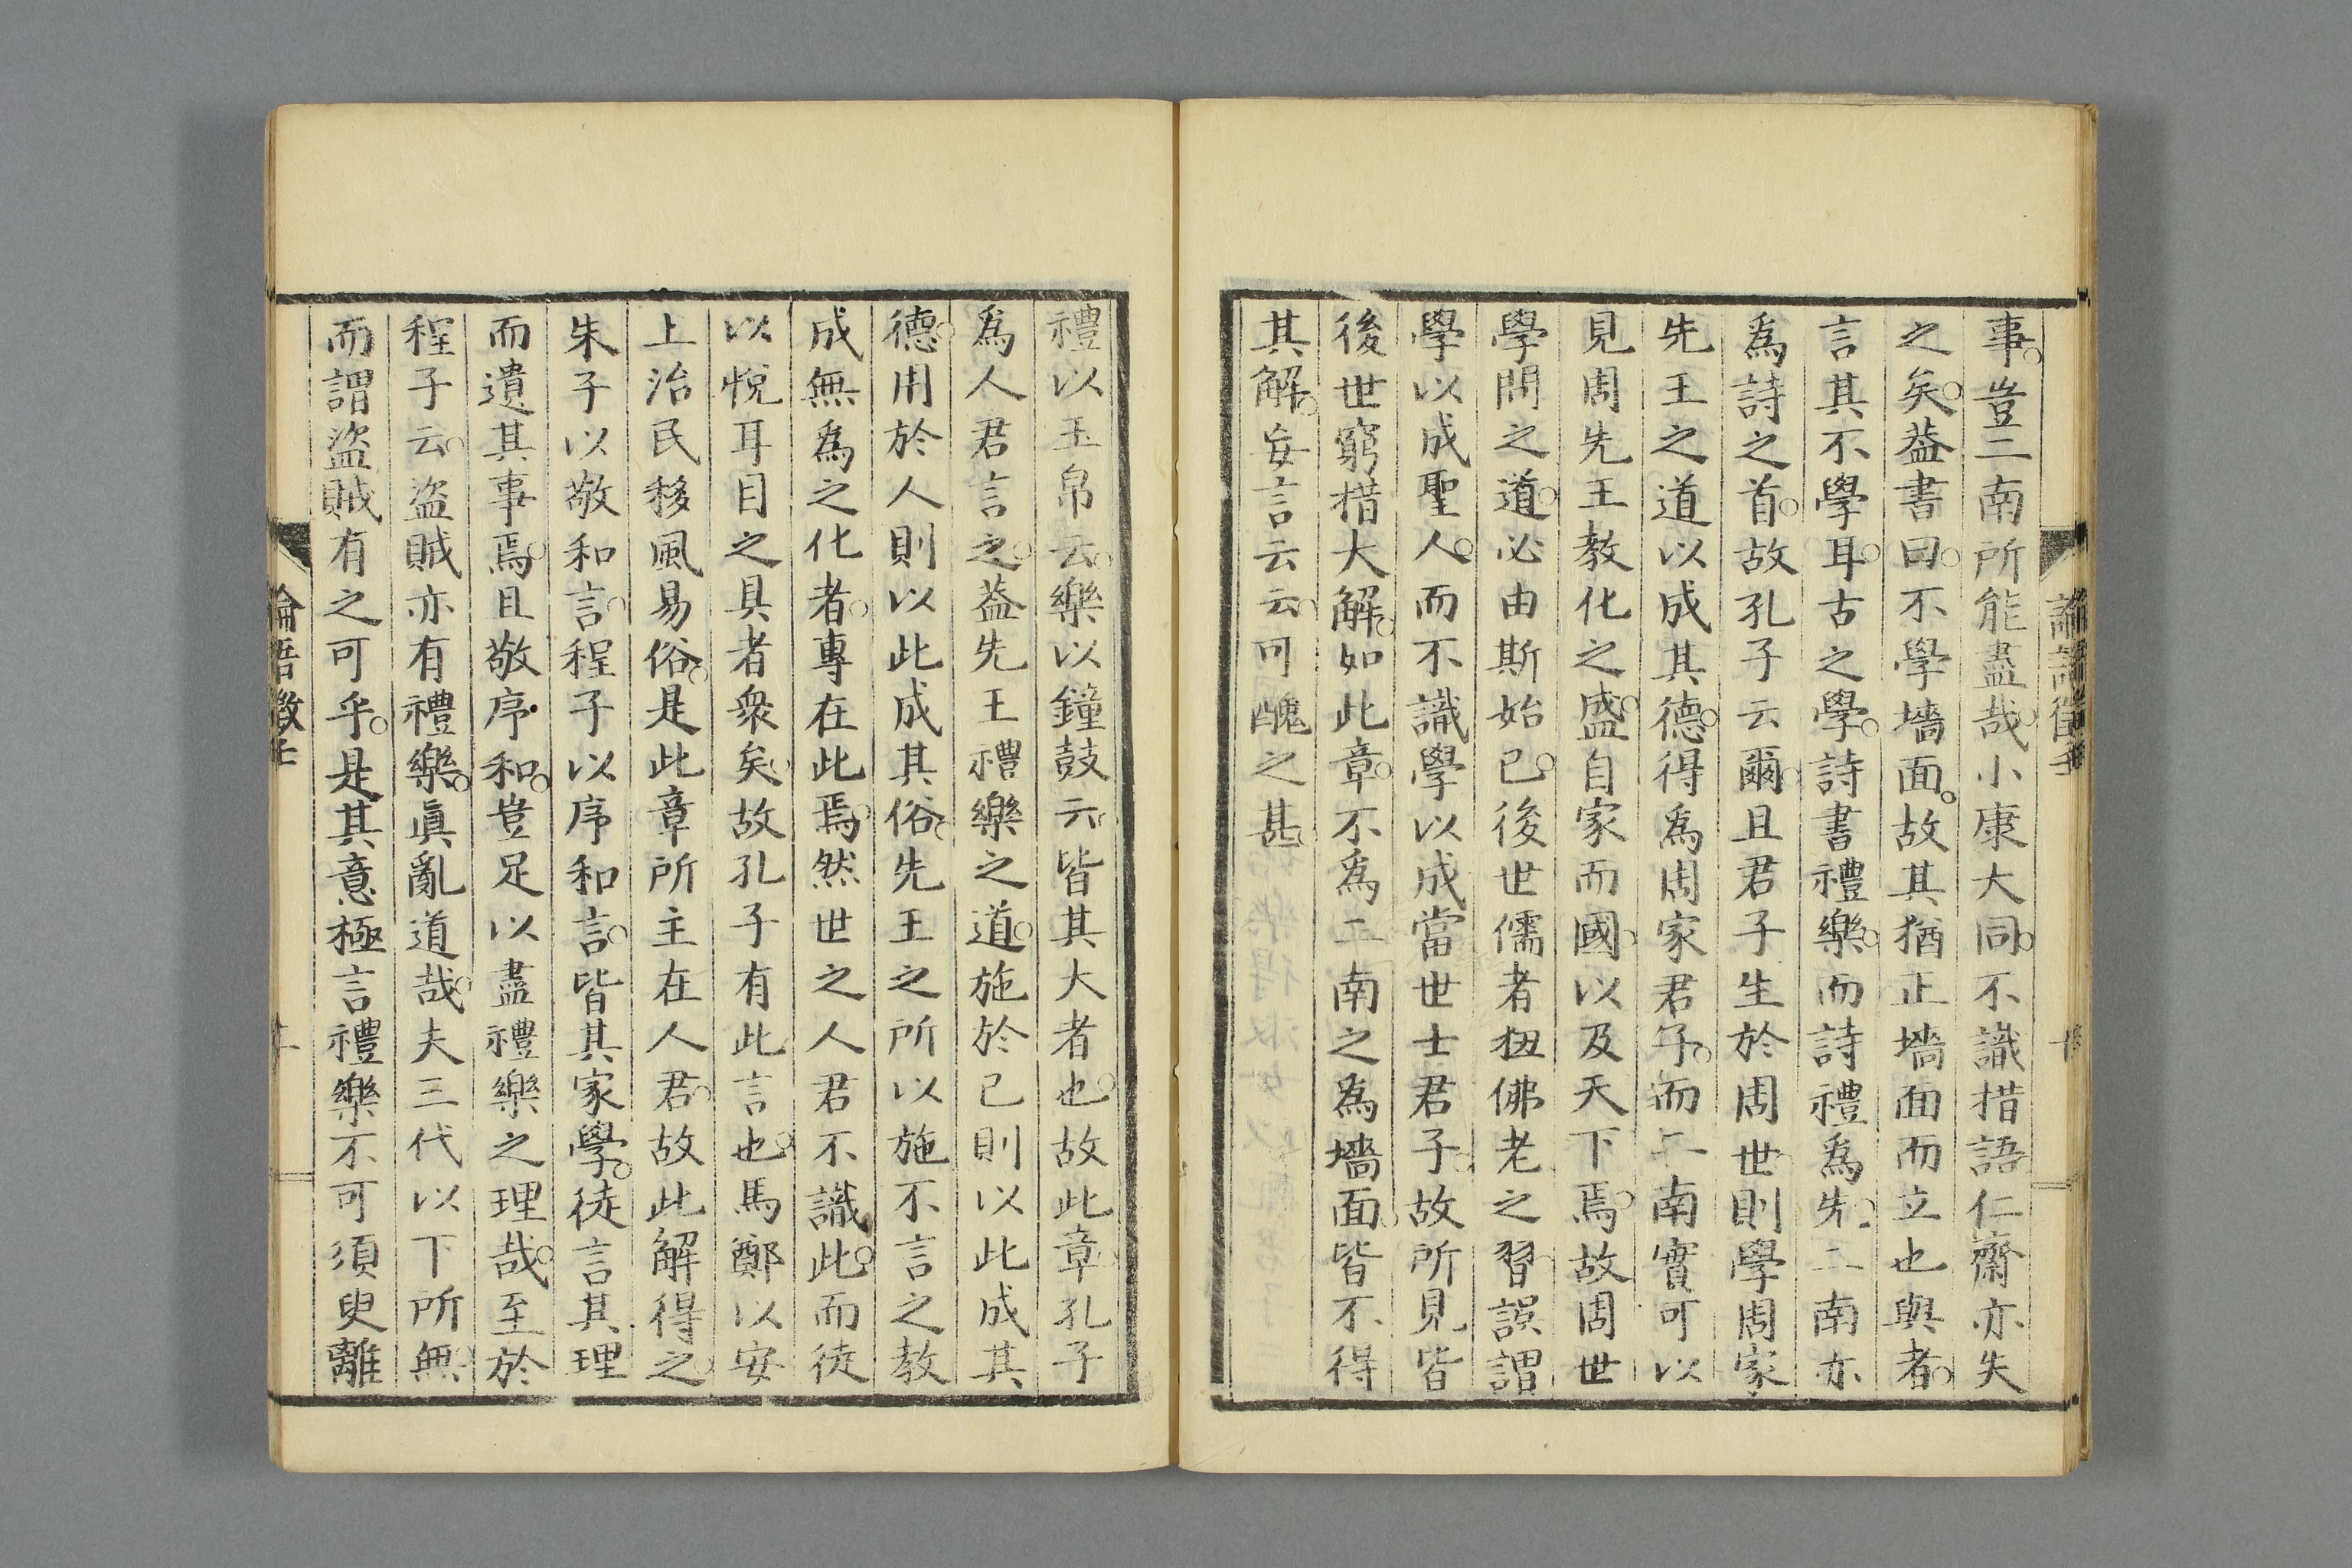 事。豈二南所能盡哉。小康大同。不識措語仁齋亦失
之矣。蓋書曰。不學墻面。故其猶正墻面而立也與者。
言其不學耳。古之學。詩書禮樂。而詩禮爲先。二南亦
爲詩之首。故孔子云爾。且君子生於周世。則學周家
先王之道以成其德。得爲周家君子。而二南實可以
見周先王教化之盛。自家而國。以及天下焉。故周世
學問之道。必由斯始已。後世儒者狃佛老之習。誤謂
學以成聖人。而不識學以成當世士君子。故所見皆
後世窮措大解。如此章。不爲二南之爲墻面。皆不得
其解。妄言云云。可醜之甚。
禮以玉帛云。樂以鐘鼓云。皆其大者也。故此章。孔子
爲人君言之。蓋先王禮樂之道。施於己則以此成其
德。用於人則以此成其俗。先王之所以施不言之教
成無爲之化者。專在此焉。然世之人君不識此。而徒
以悅耳目之具者衆矣。故孔子有此言也。馬鄭以安
上治民移風易俗。是此章所主在人君。故此解得之。
朱子以敬和言。程子以序和言。皆其家學。徒言其理
而遺其事焉。且敬序和。豈足以盡禮樂之理哉。至於
程子云。盜賊亦有禮樂。眞亂道哉。夫三代以下所無。
而謂盜賊有之可乎。是其意極言禮樂不可須臾離
論語徵壬